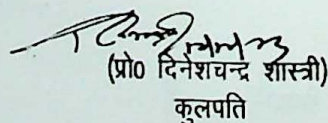 (प्रो0 दिनेशचन्द्र शास्त्री)
कुलपति